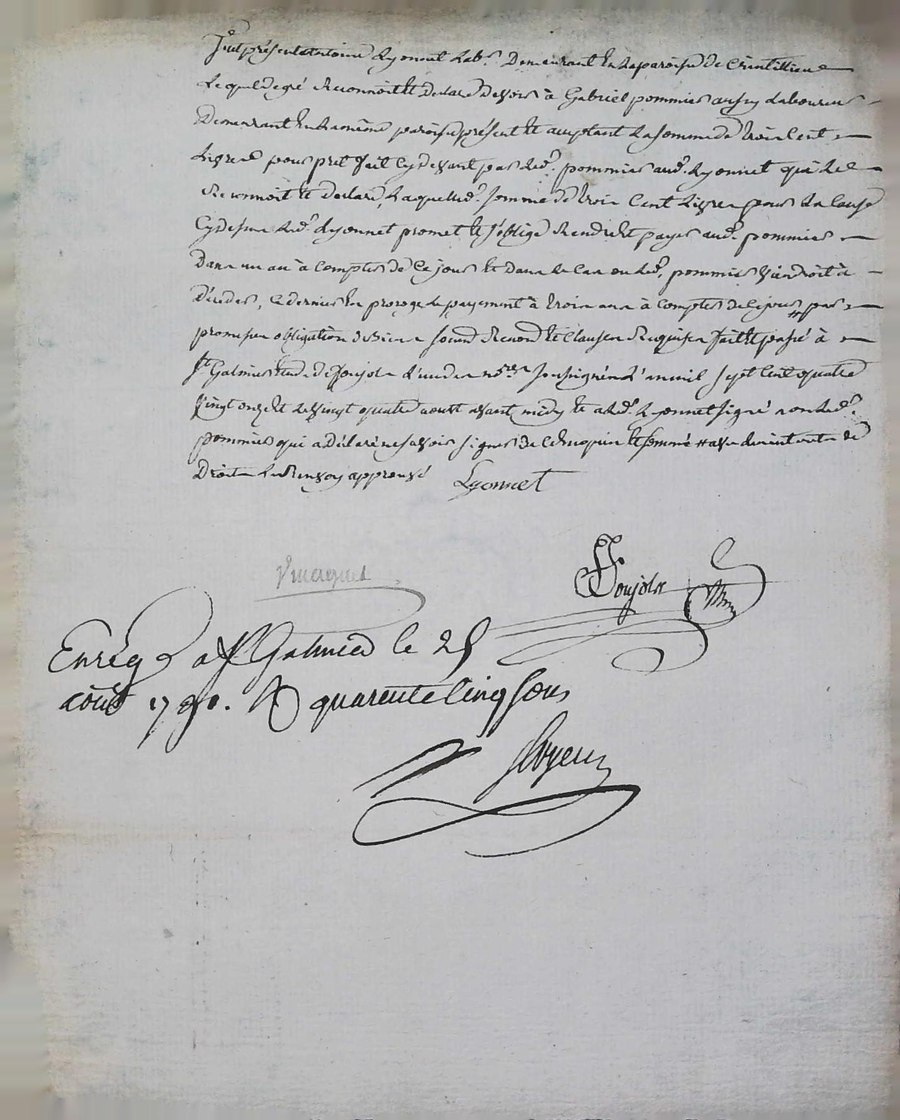 fut présent antoine Lyonnet lab.r Demeurant en la paroisse de
Lequel de gré Reconnoit et Declare Devoir à Gabriel pommier aussy Laboureur
Demeurant en la même paroisse présent et acceptant La somme de trois cent
Livres pour pret fait cy devant par led.t pommier aud.t Lyonnet qui le
Reconnoit et declare, Laquelle d.e somme de trois Cent Livres pour la Cause
Cy dessus led.t Lyonnet promet et s'oblige Rendre et payer aud.t pommier
Dans un an à Compter de Ce jour et dans le Cas ou led.t pommier viendroit à
Déceder, Ce dernier proroge le payement à trois ans à Compter de Ce jour # par
promesse obligation de biens soumis Renon.d et Clauses Requises fait et passé à
S.t Galmier Etude de Soujols L'un des no.res soussignés L'an mil sept Cent quatre
vingt onze et le vingt quatre aoust avant midy et a led.t Lyonnet signé non led.t
pommier qui a Déclaré ne savoir signer de Ce Enquis et sommé #
Droit Le Renvoy approuvé Lyonnet
Soujols
Enrég.é a S.t Galmier le 25
août 1791. R quarente Cinq sous